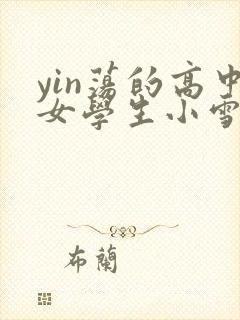 yin蕩的高中
女學生小雪
布蘭